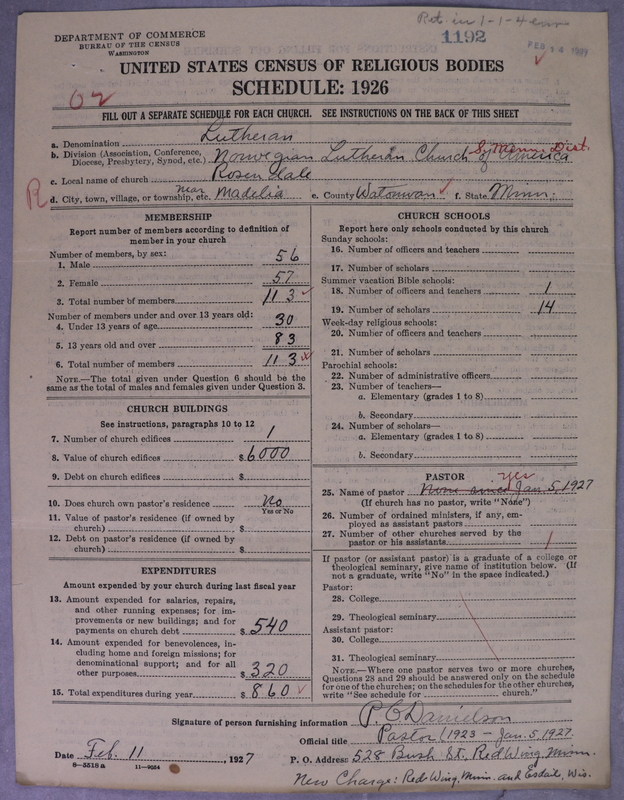 Ret in 1-1-4
1192
FEB 14 1927
DEPARTMENT OF COMMERCE
BUREAU OF THE CENSUS
WASHINGTON
UNITED STATES CENSUS OF RELIGIOUS BODIES
SCHEDULE: 1926
FILL OUT A SEPARATE SCHEDULE FOR EACH CHURCH. SEE INSTRUCTIONS ON THE BACK OF THIS SHEET
a. Denomination Lutheran
So. Minn. Dist.
b. Division (Association, Conference, Diocese, Presbytery, Synod, etc.) Norwegian Lutheran Church of America
c. Local name of church Rosendale
R d. City, town, village, or township, etc. near Madelia e. County Watonwan f. State Minn.
MEMBERSHIP
Report number of members according to definition of
member in your church
Number of members, by sex:
1. Male 56
2. Female 57
3. Total number of members 113
Number of members under and over 13 years old:
4. Under 13 years of age 30
5. 13 years old and over 83
6. Total number of members 113
NOTE.—The total given under Question 6 should be the
same as the total of males and females given under Question 3.
CHURCH BUILDINGS
See instructions, paragraphs 10 to 12
7. Number of church edifices 1
8. Value of church edifices $ 6000
9. Debt on church edifices $
10. Does church own pastor's residence No
Yes or No
11. Value of pastor's residence (if owned by
church) $
12. Debt on pastor's residence (if owned by
church) $
EXPENDITURES
Amount expended by your church during last fiscal year
13. Amount expended for salaries, repairs,
and other running expenses; for im-
provements or new buildings; and for
payments on church debt $ 540
14. Amount expended for benevolences, in-
cluding home and foreign missions; for
denominational support; and for all
other purposes $ 320
15. Total expenditures during year $ 860
CHURCH SCHOOLS
Report here only schools conducted by this church
Sunday schools:
16. Number of officers and teachers
17. Number of scholars
Summer vacation Bible schools:
18. Number of officers and teachers 1
19. Number of scholars 14
Week-day religious schools:
20. Number of officers and teachers
21. Number of scholars
Parochial schools:
22. Number of administrative officers
23. Number of teachers—
a. Elementary (grades 1 to 8)
b. Secondary
24. Number of scholars—
a. Elementary (grades 1 to 8)
b. Secondary
PASTOR yes
25. Name of pastor None since Jan. 5, 1927
(If church has no pastor, write "None")
26. Number of ordained ministers, if any, em-
ployed as assistant pastors
27. Number of other churches served by the
pastor or his assistants 1
If pastor (or assistant pastor) is a graduate of a college or
theological seminary, give name of institution below. (If
not a graduate, write "No" in the space indicated.)
Pastor:
28. College
29. Theological seminary
Assistant pastor:
30. College
31. Theological seminary
NOTE.—Where one pastor serves two or more churches,
Questions 28 and 29 should be answered only on the schedule
for one of the churches; on the schedules for the other churches,
write "See schedule for church."
Signature of person furnishing information P. C. Danielson
Official title Pastor (1923 - Jan. 5, 1927.
Date Feb. 11, 1927 P. O. Address 528 Bush St. Red Wing, Minn.
8-5518 a 11-9034
New Charge: Red Wing, Minn. and Esdaile, Wis.